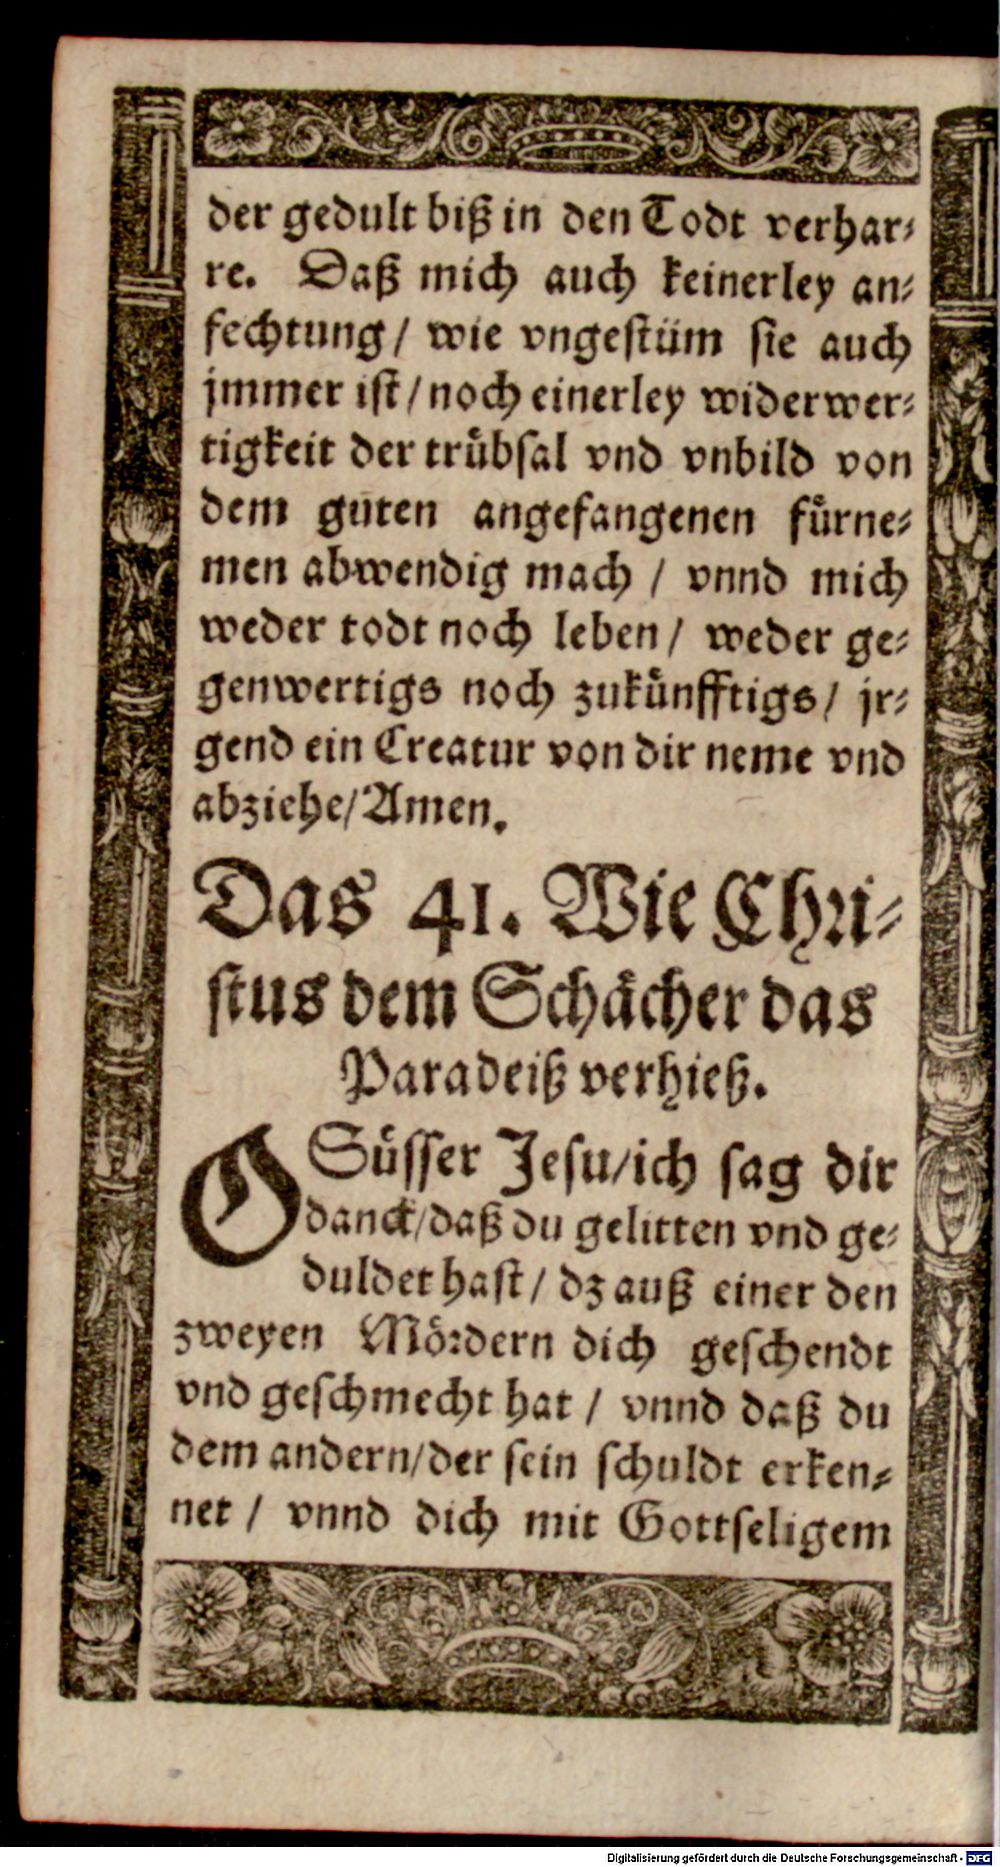 der gedult biß in den Todt verhar⸗
re. Daß mich auch keinerley an⸗
fechtung/ wie vngestüm sie auch
jmmer ist/ noch einerley widerwer⸗
tigkeit der trübsal vnd vnbild von
dem guten angefangenen fürne⸗
men abwendig mach / vnnd mich
weder todt noch leben/ weder ge⸗
genwertigs noch zukünfftigs/ jr⸗
gend ein Creatur von dir neme vnd
abziehe/ Amen.
Das 41. Wie Chri⸗
stus dem Schächer das
Paradeiß verhieß.
O Süsser Jesu/ ich sag dir
danck/ daß du gelitten vnd ge⸗
duldet hast/ dz auß einer den
zweyen Mördern dich geschendt
vnd geschmecht hat / vnnd daß du
dem andern/ der sein schuldt erken⸗
net / vnnd dich mit Gottseligem
Digitalisierung gefördert durch die Deutsche Forschungsgemeinschaft - DFG